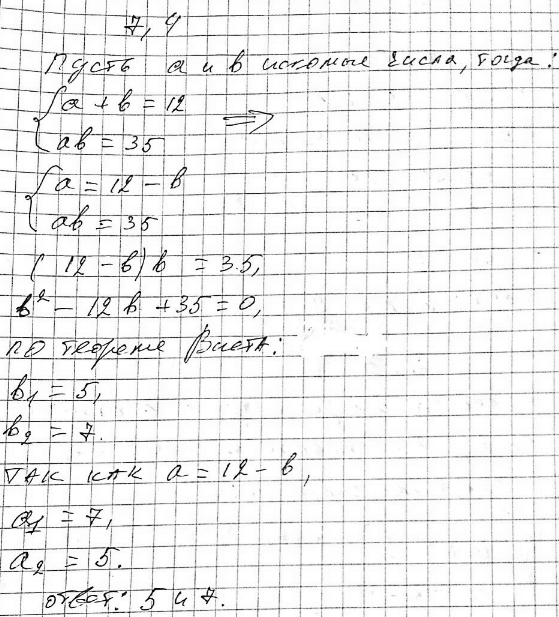 7,4
Пусть a и b искомые числа, тогда:
{ a + b = 12 ⟹
ab = 35
{ a = 12 - b
ab = 35
(12 - b) b = 35,
b² - 12b + 35 = 0,
по теореме Виета:
b₁ = 5,
b₂ = 7.
так как a = 12 - b,
a₁ = 7,
a₂ = 5.
ответ: 5 и 7.